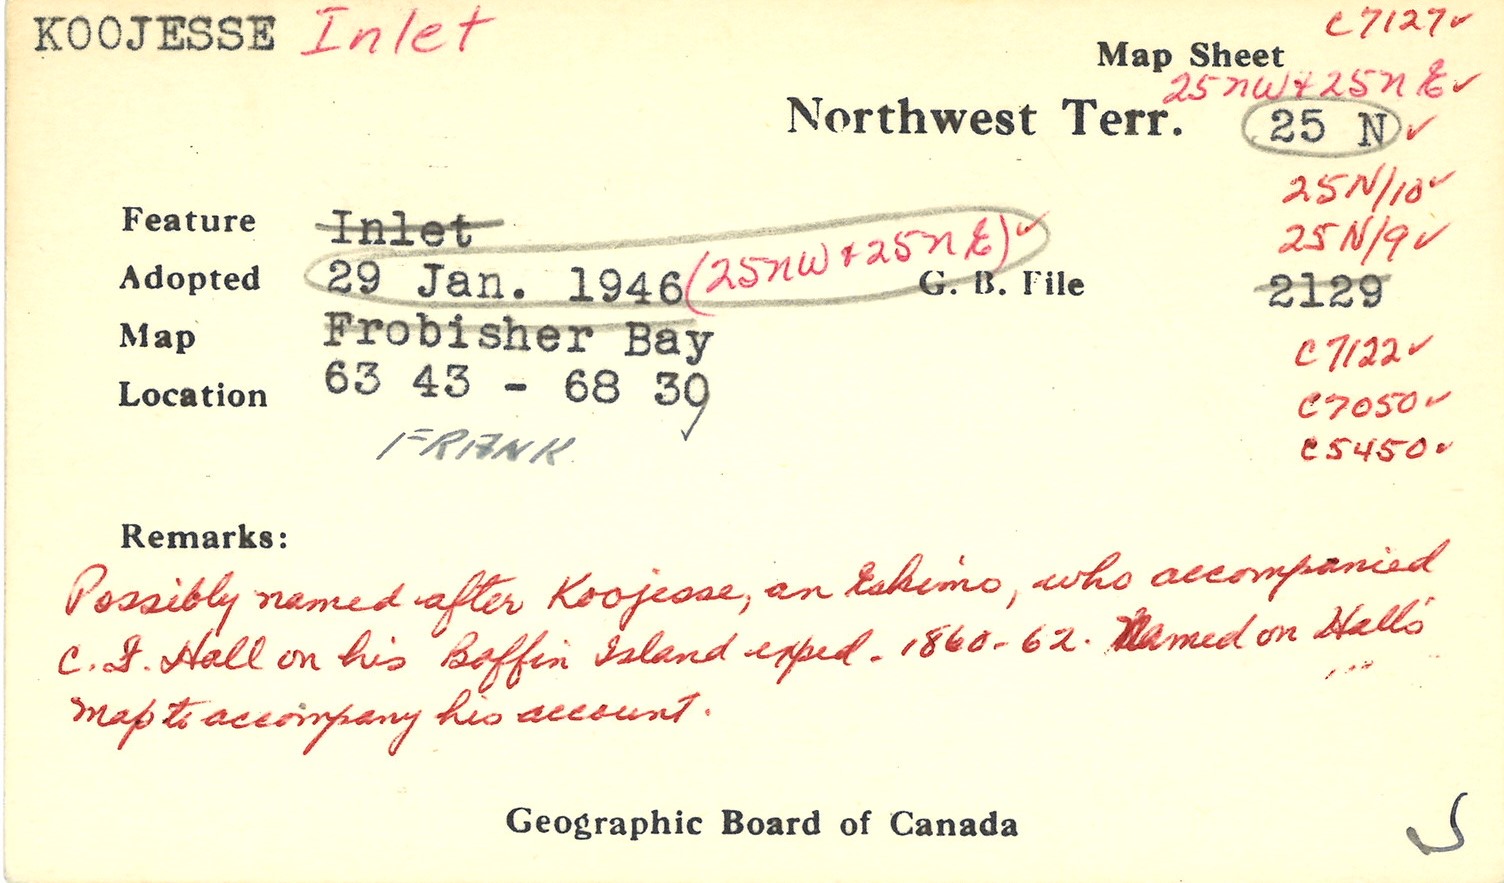 KOOJESSE Inlet
C7127✓
Map Sheet
25NW + 25NE✓
Northwest Terr. 25 N ✓
25N/10✓
Feature Inlet
25N/9✓
Adopted 29 Jan. 1946 (25NW + 25NE)✓ G. B. File 2129
Map Frobisher Bay
C7122✓
Location 63 43 - 68 30✓
C7050✓
FRANK
C5450✓
Remarks:
Possibly named after Koojesse, an Eskimo, who accompanied
C. F. Hall on his Baffin Island exped. 1860-62. Named on Hall's
Map to accompany his account.
Geographic Board of Canada